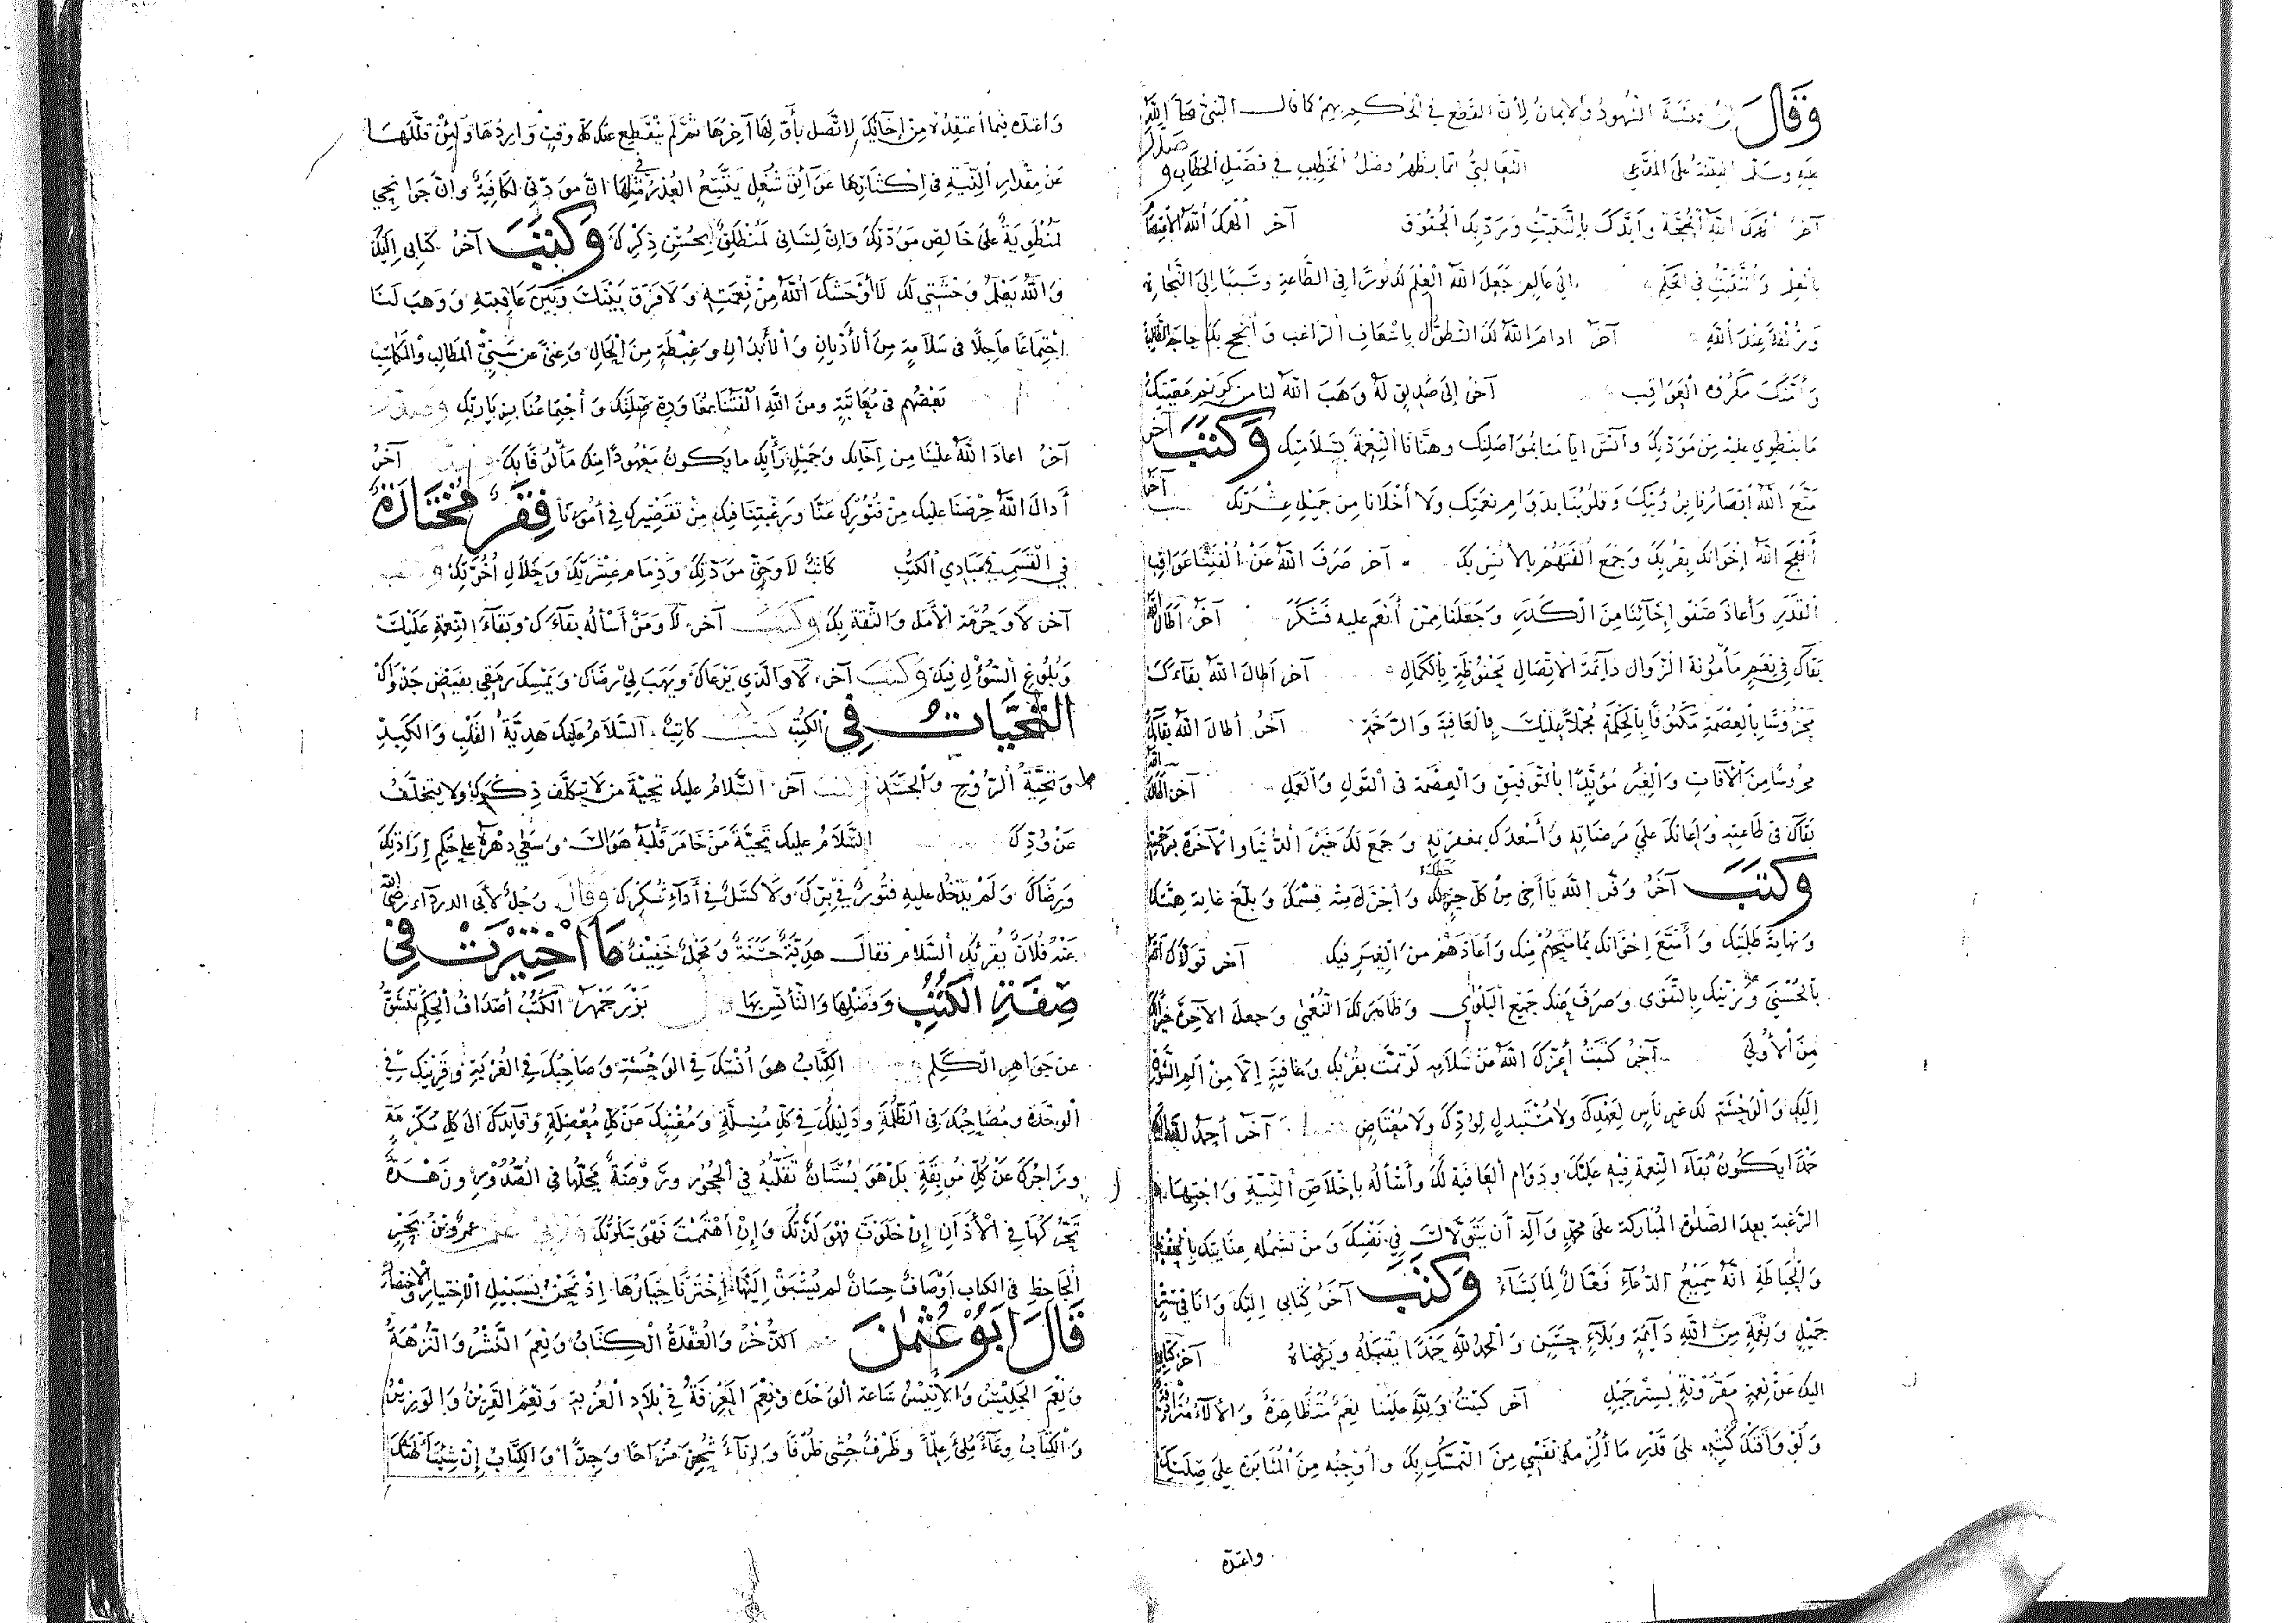 وقال البينة الشهود والأيمان لأن القطع في الحكم بهم كما قال النبي صلى الله
عليه وسلم البينة على المدعي الثعالبي انما يظهر وفضل الخطيب في فضل الخطاب و
آخر الله الحجة وأيدك بالتثبت ورد بك الحقوق آخر ألهمك الله الاعتصام
بالعلم والتثبت في الحكم إلى عالم جعل الله العلم لك نورا في الطاعة وسببا إلى النجاة
وزلفة عند الله آخر ادام الله لك التطول باسعاف الراغب وأنجح بك حاجة الطالب
وأمنك مكروه العواقب آخر إلى صديق له وهب الله لنا من كريم
ما ينطوي عليه من مودتك وآنس أيامنا بمواصلتك وهنأنا النعمة بسلامتك وكتب آخر
متع الله أبصارنا برؤيتك وقلوبنا بدوام نعمتك ولا أخلانا من جميل عشرتك آخر
أبهج الله إخوانك بقربك وجمع ألفتهم بالأنس بك آخر صرف الله عن ألفتنا عواقب
القدر وأعاذ صفو إخائنا من الكدر وجعلنا ممن أنعم عليه فشكر آخر أطال الله
بقاك في نعم مأمونة الزوال دائمة الاتصال محفوظة بالكمال آخر أطال الله بقاءك
محروسا بالعصمة مكنوفا بالحكمة مجملا عليك بالعافية والرحمة آخر أطال الله بقاك
محروسا من الآفات والغير مؤيدا بالتوفيق والعصمة في القول والعمل آخر أطال الله
بقاك في طاعته وأعانك على مرضاته وأسعدك بمغفرته وجمع لك خير الدنيا والآخرة برحمته
وكتب آخر وفر الله يا أخي من كل خير حظك وأجزل منه قسمك وبلغ غاية همتك
ونهاية طلبتك وأمتع إخوانك بما منحهم منك وأعاذهم من الغير فيك آخر تولاك الله
بالحسنى وزينك بالتقوى وصرف عنك جميع البلوى وظاهر لك النعمى وجعل الآخرة خيرا لك
من الأولى آخر كتبت أعزك الله من سلامة لو تمت بقربك وعافية إلا من ألم الشوق
إليك والوحشة لك غير ناس لعهدك ولا مستبدل لودك ولا معتاض آخر أحمد لله لك
حمدا يكون بقاء النعمة فيه عليك ودوام العافية لك وأسأله بإخلاص النية واجتهاد
الرغبة بعد الصلوة المباركة على محمد وآله أن يتولاك في نفسك ومن تشمله عنايتك بالحفظ
والحياطة انه سميع الدعاء فعال لما يشاء وكتب آخر كتابي إليك وانا في ستر
جميل ونعمة من الله دائمة وبلاء حسن والحمد لله حمدا يتقبله ويرضاه آخر كتابي
اليك عن نعمة مقرونة بستر جميل آخر كتبت ولله علينا نعم متظاهرة والآلاء مترادفة
ولو وافتك كتبي على قدر ما ألزمه نفسي من التمسك بك وأوجبه من المثابرة على صلتك
واعتده
وأعتده فيما أعتقده من إخائك لاتصل بأولها آخرها ثم لم ينقطع عنك كل وقت واردها ولئن قللها
عن مقدار النية في إكثارها عوائق شغل يتسع العذر في مثلها ان مودتي لكافية وان جوانحي
لمنطوية على خالص مودتك وإن لساني لمنطلق بحسن ذكرك وكتب آخر كتابي إليك
والله يعلم وحشتي لك لا أوحشك الله من نعمته ولا فرق بينك وبين عافيته ووهب لنا
اجتماعا عاجلا في سلامة من الأديان والأبدان وغبطة من الحال وغنى عن سني المطالب والمكاسب
بعضهم في معاتبة ومن الله ألفتنا بمعاودة صلتك واجتماعنا بزيارتك
آخر اعاد الله علينا من إخائك وجميل رأيك ما يكون معهودا منك مألوفا بك آخر
أدال الله حرصنا عليك من فتورك عنا ورغبتنا فيك من تقصيرك في أمورنا فقر مختارة
في القسم في مبادي الكتب كاتب لا وحق مودتك وذمام عشرتك وخلال أخوتك
آخر لا وحرمة الأمل والثقة بك وكتب آخر لا ومن أسأله بقاءك وبقاء النعمة عليك
وبلوغ السؤل فيك وكتب آخر لا والذي يرعاك ويهب لي رضاك ويمسك رمقي بفيض جدواك
التحيات في الكتب كتب كاتب السلام عليك هدية القلب والكبد
وتحية الروح والجسد آخر السلام عليك تحية من لا يتكلف ذكرك ولا يتخلف
عن ودك السلام عليك تحية من خامر قلبه هواك وسعى دهره على حكم إرادتك
ورضاك ولم يدخل عليه فتور في برك ولا كسل في أداء شكرك وقال رجل لأبي الدرداء رضي الله
عنه فلان يقرئك السلام فقال هدية حسنة ومحمل خفيف ما أختيرت في
صفة الكتب وفضلها والتأنس بها بزرجمهر الكتب أصداف الحكم تنشق
عن جواهر الكلم الكتاب هو أنسك في الوحشة وصاحبك في الغربة وقرينك في
الوحدة ومصباحك في الظلمة ودليلك في كل مسئلة ومغنيك عن كل معضلة وقائدك الى كل مكرمة
وزاجرك عن كل موبقة بل هو بستان تقلبه في الحجور وروضة تحلها في الصدور وزهدة
تحركها في الأذان إن خلوت فهو لذتك وإن أهتممت فهو سلوتك عمرو بن بحر
الجاحظ في الكتاب أوصاف حسان لم يسبق إليها إخترنا خيارها إذ نحن بسبيل الاختيار والاختصار
قال ابو عثمان الذخر والعقدة الكتاب ونعم النشر والنزهة
ونعم الجليس والأنيس ساعة الوحدة ونعم المعرفة في بلاد الغربة ونعم القرين والوزير
والكتاب وعاء ملئ علما وظرف حشي ظرفا وإناء شحن مزاحا وجدا والكتاب إن شئت ألهتك